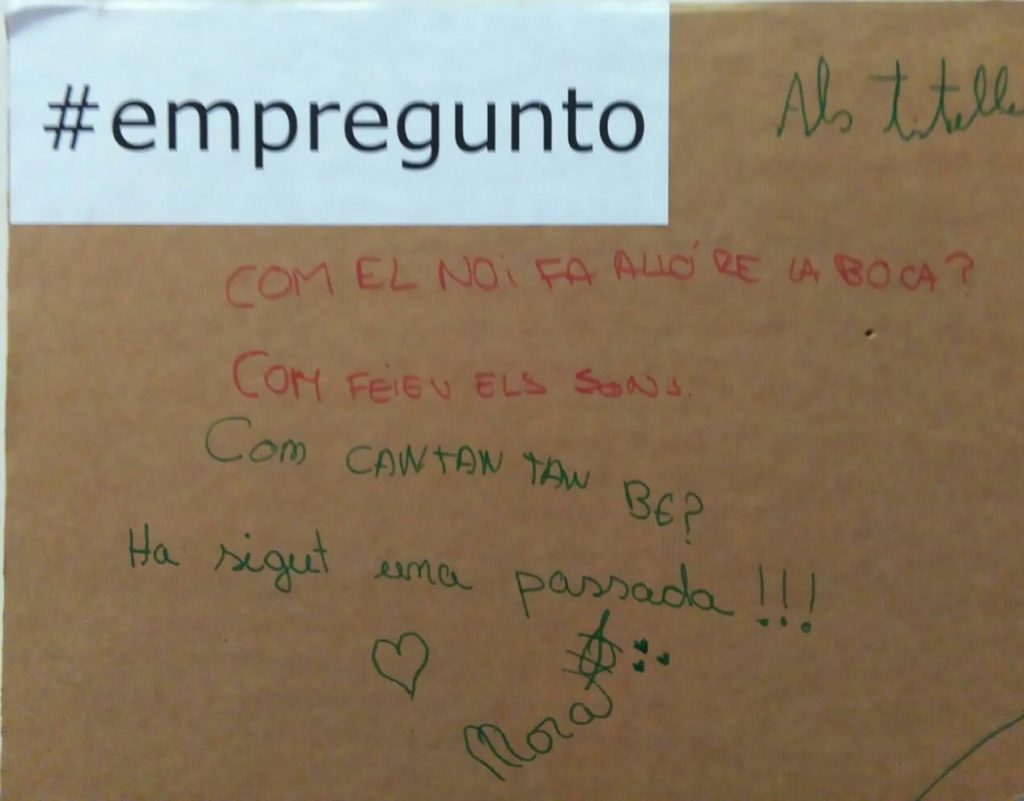 #empregunto
Als titelle
COM EL NOi FA ALLÓ RE LA BOCA?
COM FEiEU ELS SONS.
Com CANTAN TAN BE?
Ha sigut una passada !!!
Mora